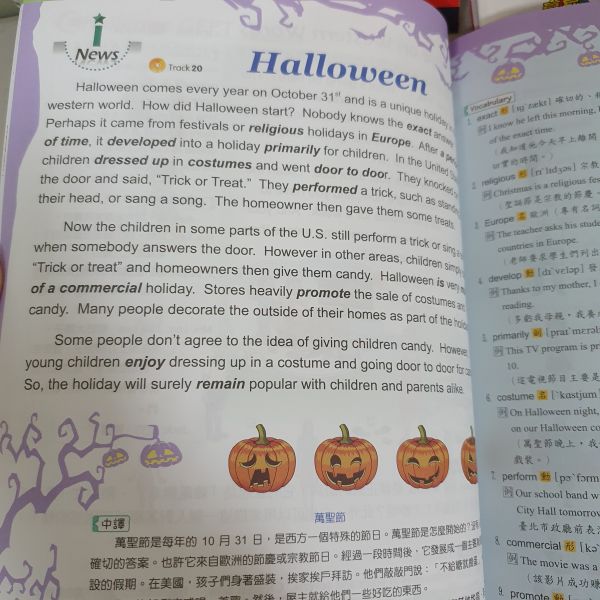 i
News
Track 20
Halloween
Halloween comes every year on October 31st and is a unique holiday
western world. How did Halloween start? Nobody knows the exact answer
Perhaps it came from festivals or religious holidays in Europe. After a
of time, it developed into a holiday primarily for children. In the United
children dressed up in costumes and went door to door. They knocked
the door and said, “Trick or Treat.” They performed a trick, such as
their head, or sang a song. The homeowner then gave them some treats.
Now the children in some parts of the U.S. still perform a trick or sing
when somebody answers the door. However in other areas, children simply
“Trick or treat” and homeowners then give them candy. Halloween is
of a commercial holiday. Stores heavily promote the sale of costumes and
candy. Many people decorate the outside of their homes as part of the
Some people don’t agree to the idea of giving children candy. However,
young children enjoy dressing up in a costume and going door to door for
So, the holiday will surely remain popular with children and parents alike.
中譯
萬聖節
萬聖節是每年的 10 月 31 日，是西方一個特殊的節日。萬聖節是怎麼開始的？
確切的答案。也許它來自歐洲的節慶或宗教節日。經過一段時間後，它發展成一個主要為
設的假期。在美國，孩子們身著盛裝，挨家挨戶拜訪。他們敲敲門說：「不給糖就搗蛋
Vocabulary
1. exact 形 [ɪgˋzækt] 確切的、
例 I know he left this morning,
of the exact time.
（我知道他今天早上離開
切實的時間。）
2. religious 形 [rɪˋlɪdʒəs] 宗教
例 Christmas is a religious
（聖誕節是宗教的節慶。
3. Europe 名 歐洲（專有名詞
例 The teacher asks his
countries in Europe.
（老師要求學生們列出
4. develop 動 [dɪˋvɛləp] 發
例 Thanks to my mother, I
reading.
5. primarily 副
例 This TV program is
10.
（這電視節目主要是
6. costume 名 [ˋkɑstjum]
例 On Halloween night,
on our Halloween
（萬聖節晚上，我
戲裝。）
7. perform 動 [pɚˋfɔrm]
例 Our school band
City Hall tomorrow
臺北市政廳前表
8. commercial 形
例 The movie was a
（該影片成功
9. promote 動